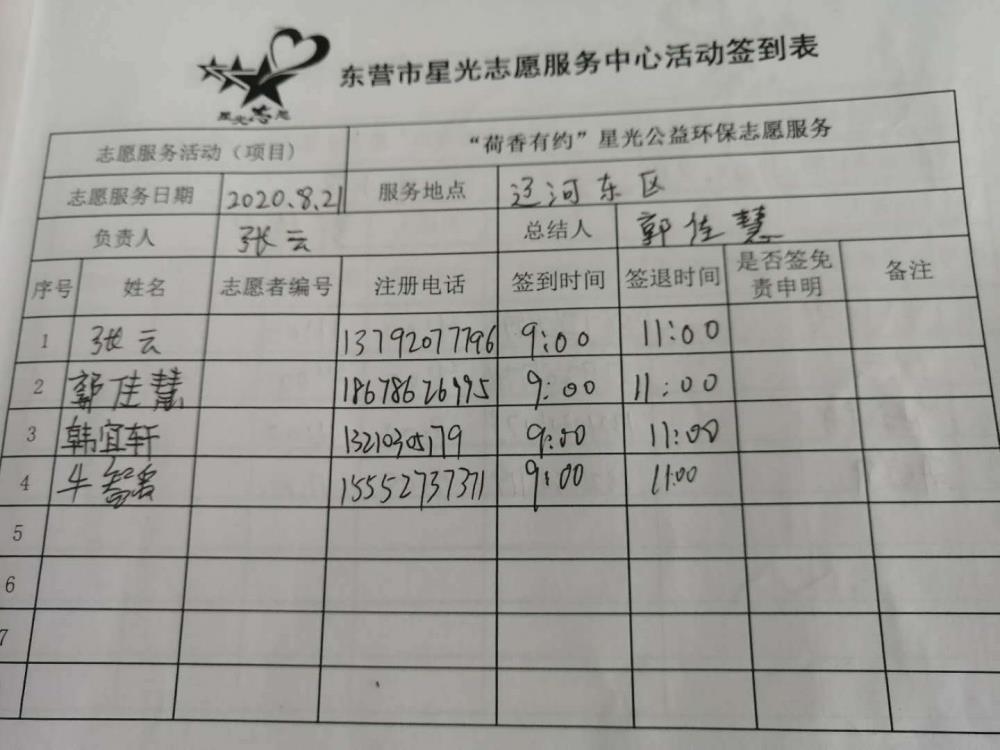 星光志愿
东营市星光志愿服务中心活动签到表
志愿服务活动（项目） “荷香有约”星光公益环保志愿服务
志愿服务日期 2020.8.21 服务地点 辽河东区
负责人 张云 总结人 郭佳慧
序号 姓名 志愿者编号 注册电话 签到时间 签退时间 是否签免责申明 备注
1 张云 13792077796 9:00 11:00
2 郭佳慧 9:00 11:00
3 韩宜轩 9:00 11:00
4 牛 15552737371 9:00 11:00
5
6
7